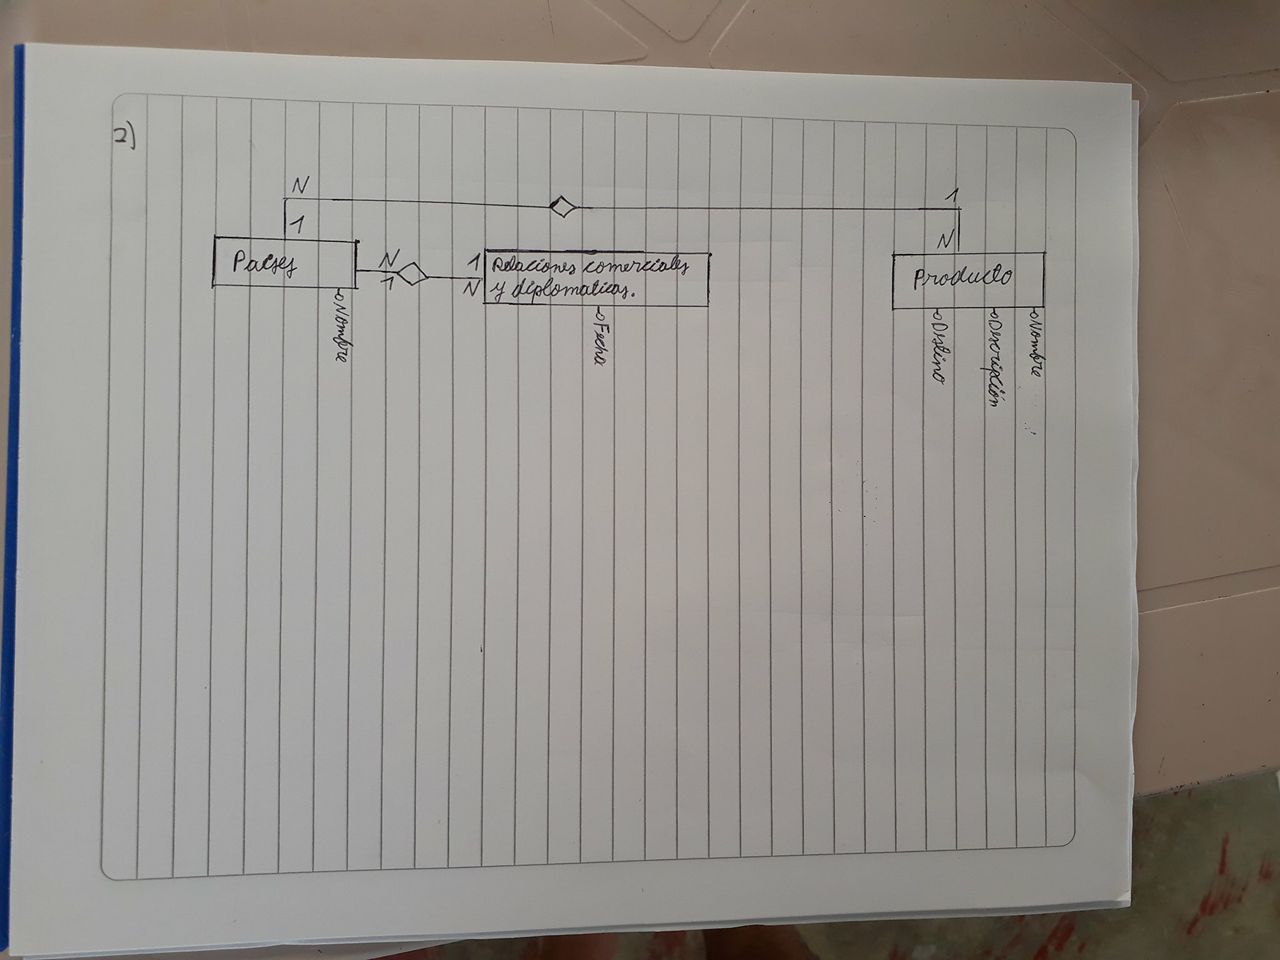 2)
N
1
1
N
Paises
N
1
1
N
Relaciones comerciales
y diplomaticas.
Producto
Nombre
Fecha
Destino
Descripción
Nombre